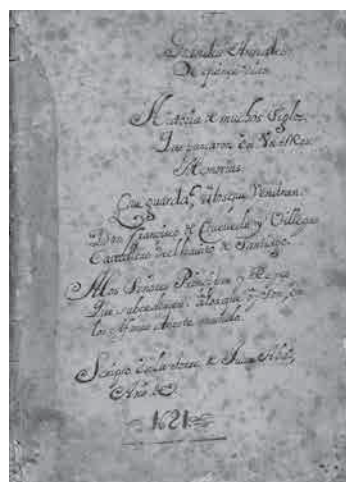 Grandes Annales
De quince dias.
Historia de muchos siglos.
Que pasaron En Un Mes
Memorias.
Que guarda, âlosque Vendran.
Don Francisco de Quevedo y Villegas
Cavallero del havito de Santiago.
Alos Señores Principes y Reyes
Que subcederan âlosque oy son, en
los Afanes deste mundo.
de Juan Abad,
Año de
1621